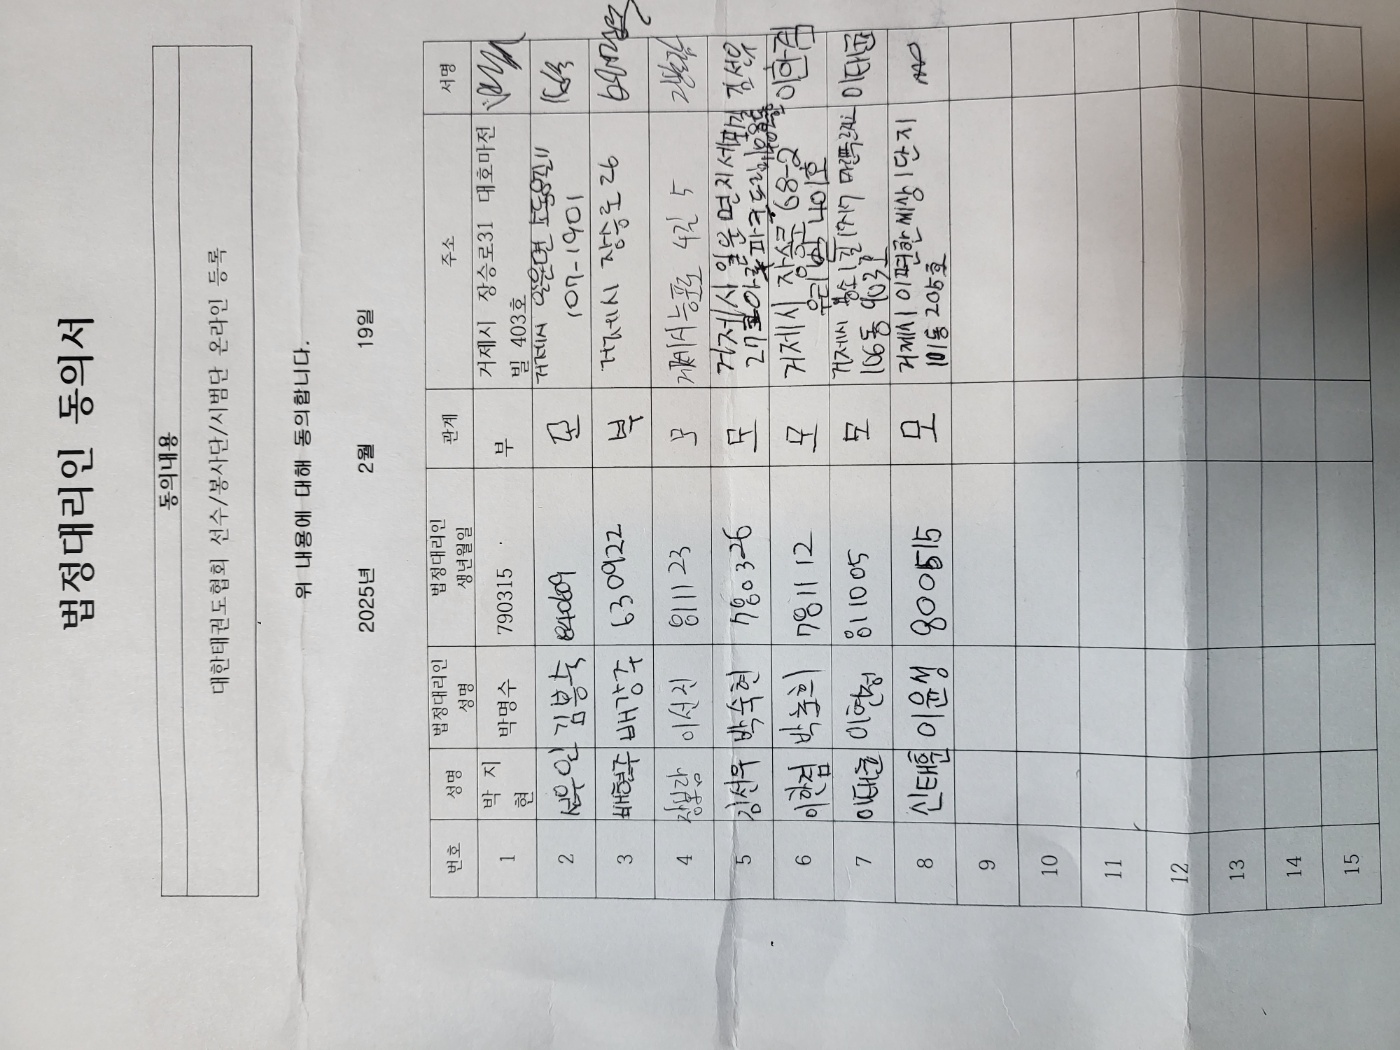 법정대리인 동의서
동의내용
대한태권도협회 선수/봉사단/시범단 온라인 등록
위 내용에 대해 동의합니다.
2025년 2월 19일
번호 성명 법정대리인 성명 법정대리인 생년월일 관계 주소 서명
1 박 지 현 박명수 790315 부 거제시 장승로31 대호마전
빌 403호
2 김봉숙 840609 모 거제시 일운면
107-1901
3 배현주 배강주 630922 부 거제시 장승로 26
4 이선진 811123 모 거제시 능포로 4길 5
5 김선우 박숙현 780326 모 거제시 일운면 지세포길 김선우
6 이한결 박농희 781112 모 거제시 68-2 이한결
7 이태훈 이연정 811005 모 거제시 이태훈
106동 903호
8 신태환 이윤성 800515 모 거제시 이편한세상 1단지
101동 205호
9
10
11
12
13
14
15